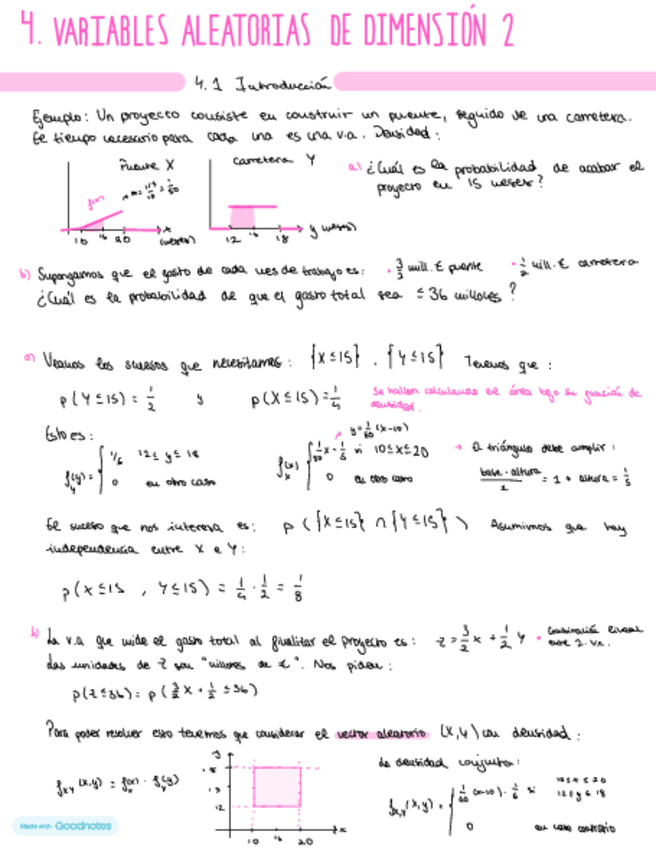 4. VARIABLES ALEATORIAS DE DIMENSIÓN 2
4.1 Introducción
Ejemplo: Un proyecto consiste en construir un puente, seguido de una carretera.
El tiempo necesario para cada una es una v.a. Densidad:
Puente X
Carretera Y
a) ¿Cuál es la probabilidad de acabar el
proyecto en 15 meses?
f(x)
10 15 20
x
(meses)
12 15 18
y (meses)
b) Supongamos que el gasto de cada mes de trabajo es: · 3/2 mill. € puente · 1/2 mill. € carretera
¿Cuál es la probabilidad de que el gasto total sea ≤ 36 millones?
a) Veamos los sucesos que necesitamos: {X≤15}, {Y≤15} Tenemos que:
p(Y≤15) = 1/2 y p(X≤15) = 1/4
Se hallan calculando el área bajo su función de
densidad.
Esto es:
y = 1/50 (x-10)
f_Y(y) = { 1/6 12≤y≤18
0 en otro caso
f_X(x) { 1/50 x - 1/5 si 10≤x≤20
0 en otro caso
El triángulo debe cumplir:
base · altura / 2 = 1 → altura = 1/5
El suceso que nos interesa es: p({X≤15} ∩ {Y≤15}) Asumimos que hay
independencia entre X e Y:
p(X≤15, Y≤15) = 1/4 · 1/2 = 1/8
b) La v.a que mide el gasto total al finalizar el proyecto es: Z = 3/2 X + 1/2 Y
Combinación lineal
entre 2 v.a.
Las unidades de Z son "millones de €". Nos piden:
p(Z≤36) = p(3/2 X + 1/2 ≤36)
Para poder resolver esto tenemos que considerar el vector aleatorio (X,Y) con densidad:
f_XY (x,y) = f_X(x) · f_Y(y)
y
18
12
10 15 20
x
La densidad conjunta:
f_X,Y (x,y) = { 1/50 (x-10) · 1/6 si 10≤x≤20
12≤y≤18
0 en caso contrario
Made with Goodnotes